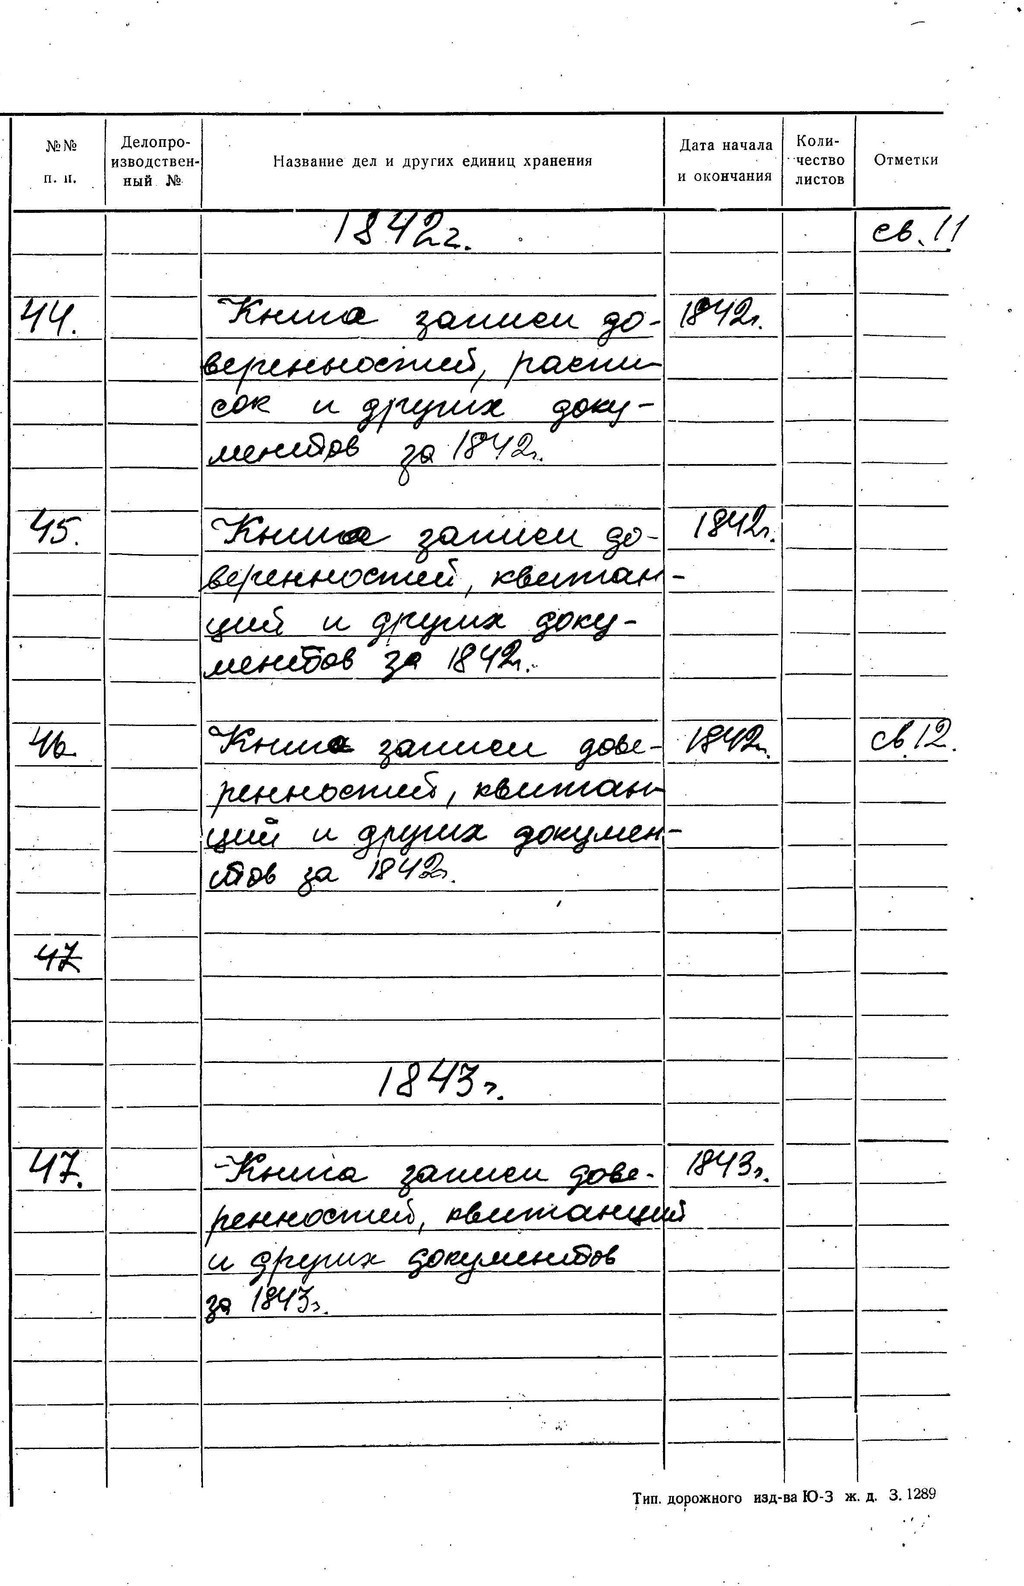 №№ п. п.
Делопро-
изводствен-
ный №
Название дел и других единиц хранения
Дата начала
и окончания
Коли-
чество
листов
Отметки
1842г. св. 11
44. Книга записи до- 1842г.
веренностей, распи-
сок и других доку-
ментов за 1842г.
45. Книга записи до- 1842г.
веренностей, квитан-
ций и других доку-
ментов за 1842г.
46 Книга записи дове- 1842г. св 12.
ренностей, квитан-
ций и других докумен-
тов за 1842г.
47
1843г.
47. Книга записи дове- 1843г.
ренностей, квитанций
и других документов
за 1843г.
Тип. дорожного изд-ва Ю-З ж. д. З. 1289